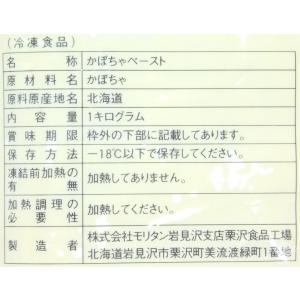 (冷凍食品)
名称 かぼちゃペースト
原材料名 かぼちゃ
原料原産地名 北海道
内容量 1キログラム
賞味期限 枠外の下部に記載してあります。
保存方法 −18℃以下で保存してください。
凍結前加熱の有無 加熱してありません。
加熱調理の必要性 加熱してください。
製造者 株式会社モリタン岩見沢支店栗沢食品工場
北海道岩見沢市栗沢町美流渡緑町1番地